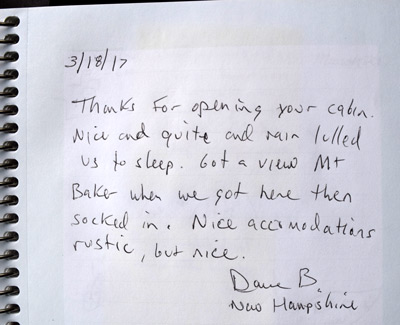 3/18/17
Thanks For opening your cabin.
Nice and quite and rain lulled
us to sleep. Got a view Mt
Baker when we got here then
socked in. Nice accomodations
rustic, but nice.
Dave B.
New Hampshire